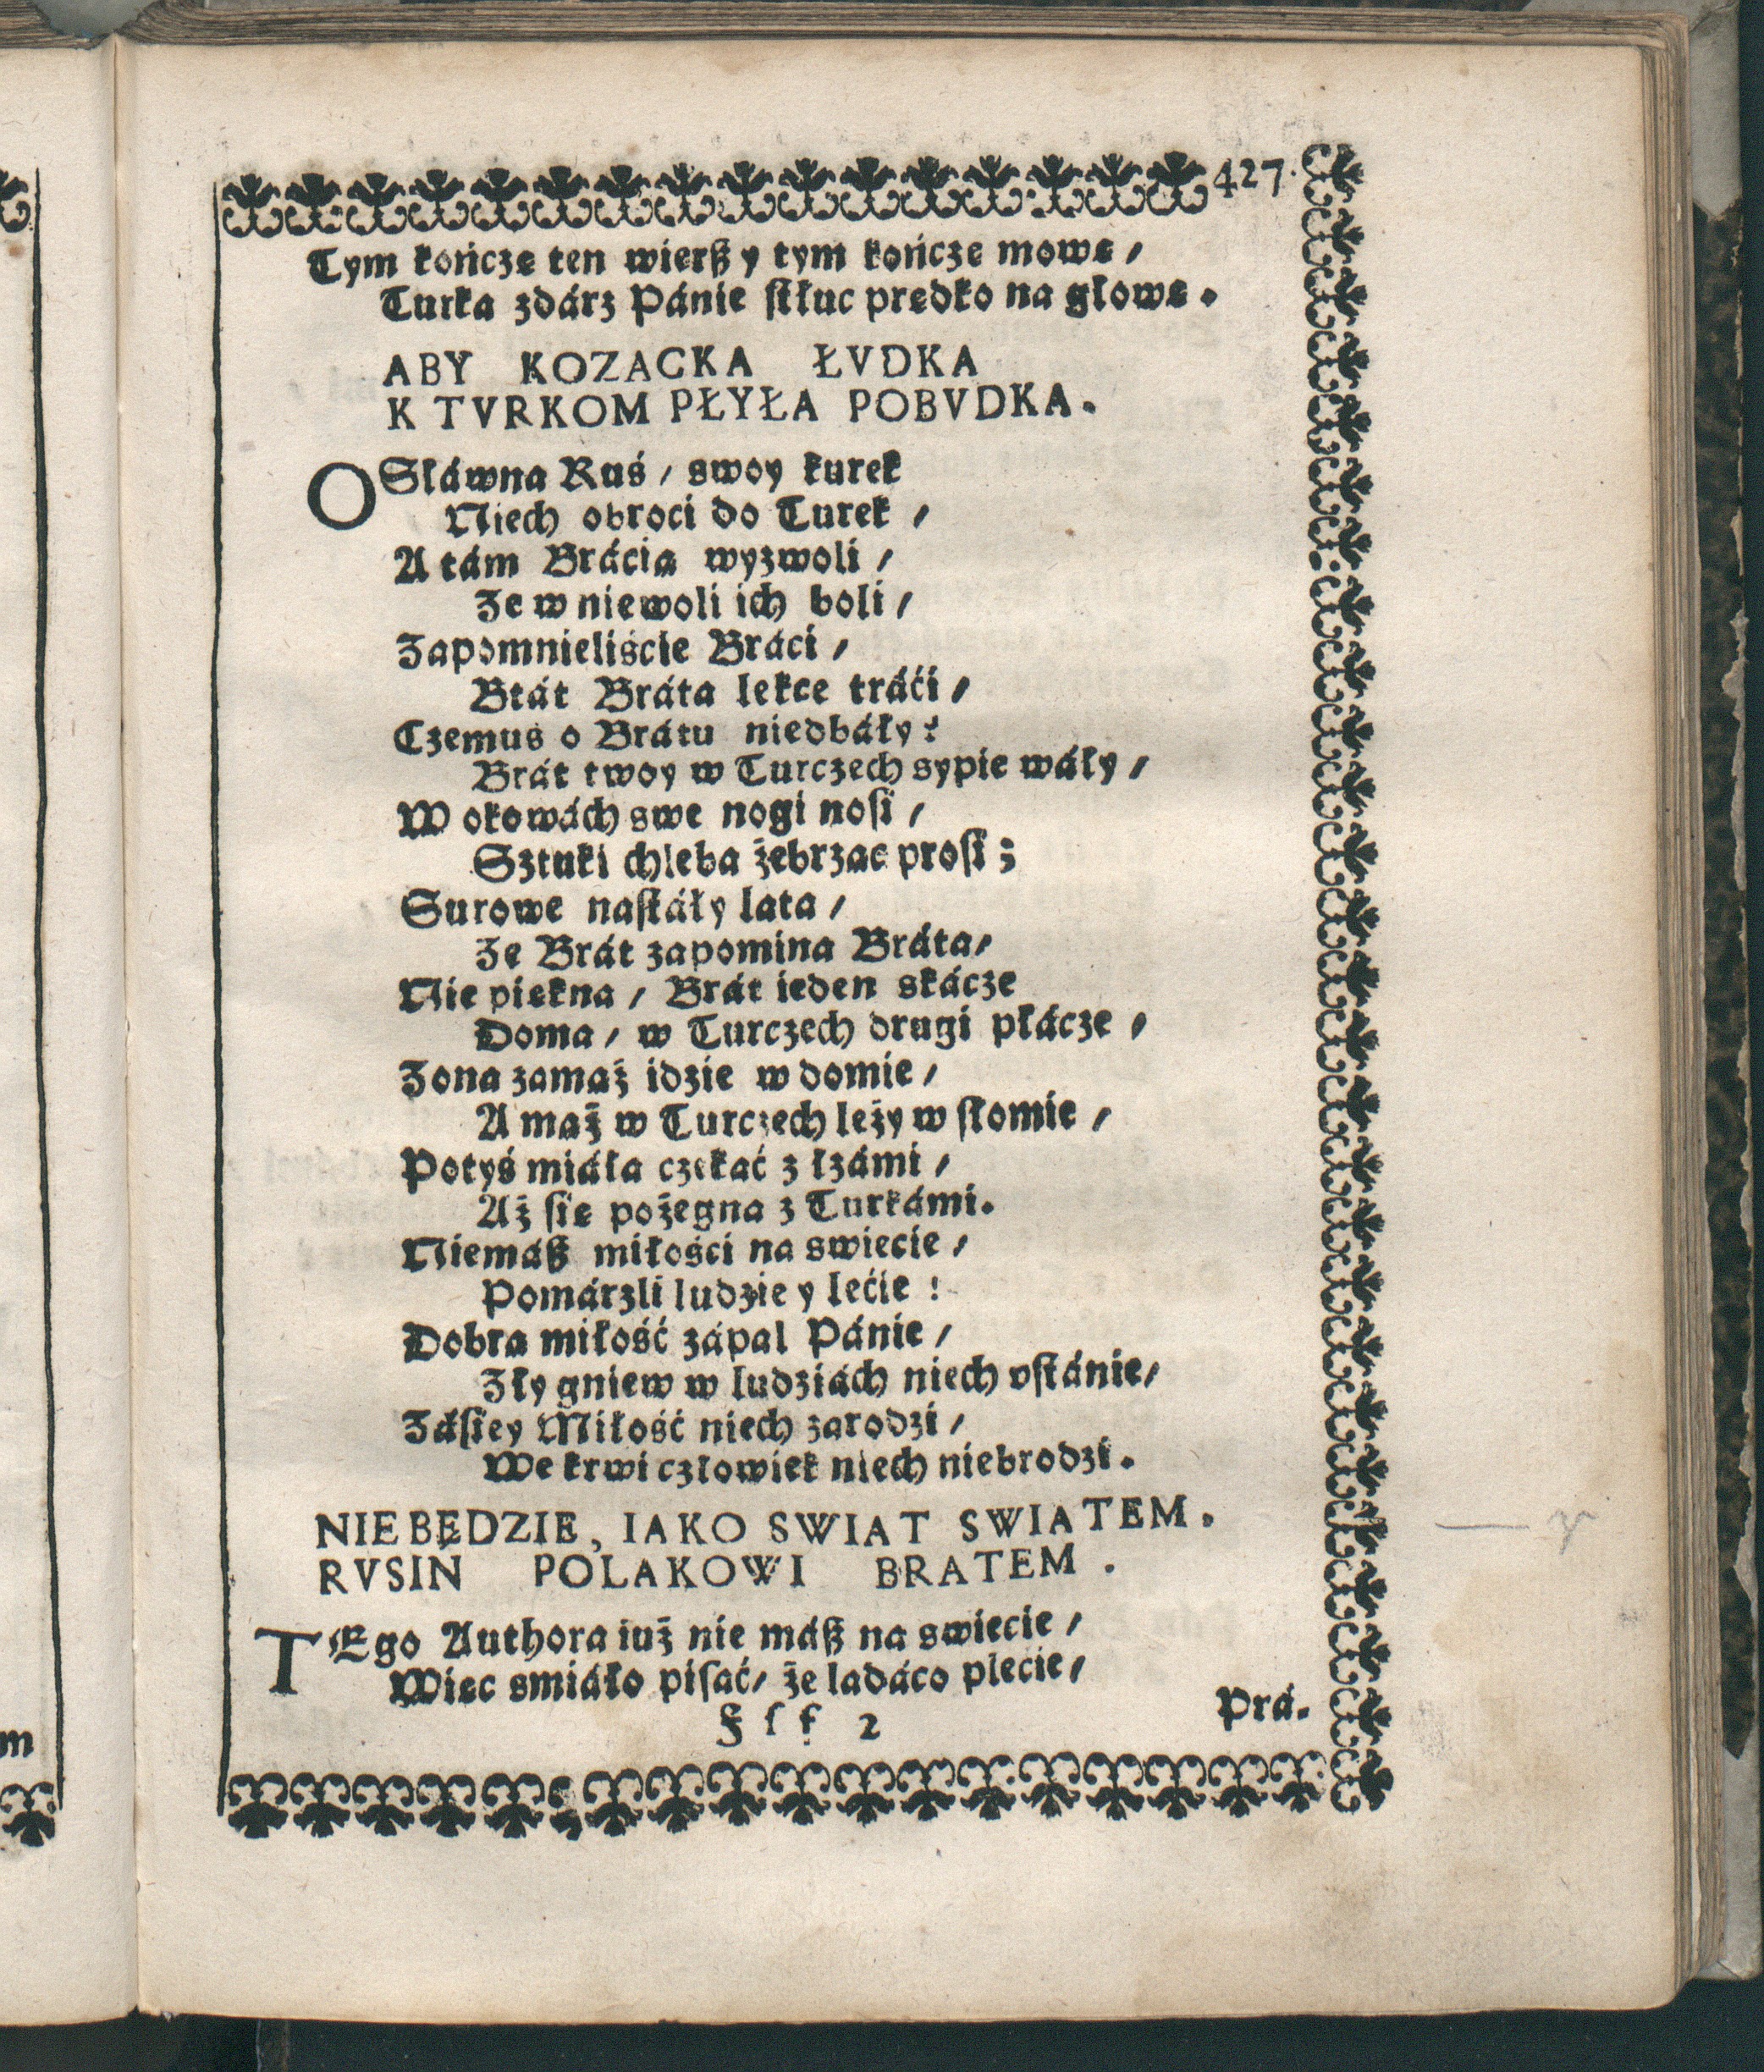 427.
Tym kończę ten wierß y tym kończę mowę /
Turka zdárz Pánie stłuc prędko na głowę .
ABY KOZACKA ŁVDKA
K TVRKOM PŁYŁA POBVDKA .
OSławna Ruś / swoy kurek
Niech obroci do Turek /
A tám Brácią wyzwoli /
Ze w niewoli ich boli /
Zapomnieliście Bráci /
Btát Bráta lekce tráći /
Czemus o Brátu niedbáły ?
Brát twoy w Turczech sypie wáły /
W okowách swe nogi nosi /
Sztuki chleba żebrząc prosi ;
Surowe nastáły lata /
Ze Brát zapomina Bráta /
Nie piękna / Brát ieden skácze
Doma / w Turczech drugi płácze /
Zona zamąż idzie w domie /
A mąż w Turczech leży w słomie /
Potyś miáła czekáć z łzámi /
Aż się pożegna z Turkámi .
Niemáß miłości na swiecie /
Pomárzli ludzie y lećie !
Dobra miłość zápal Pánie /
Zły gniew w ludziách niech vstánie /
Zásiey Miłość niech zarodzi /
We krwi człowiek niech niebrodzi .
NIEBĘDZIE , IAKO SWIAT SWIATEM .
RVSIN POLAKOWI BRATEM .
TEgo Authora iuż nie máß na swiecie /
Więc smiáło pisać / że ladáco plecie /
F f f 2
Prá.
m